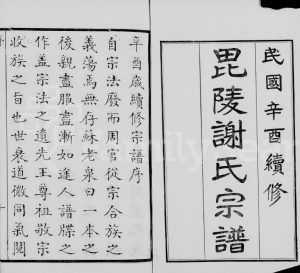 民國辛酉續修
毘陵謝氏宗譜
辛酉歲續修宗譜序
自宗法廢而周官從宗合族之
義蕩焉無存蘇老泉曰一本之
後親盡服盡漸如途人譜牒之
作蓋宗法之遺先王尊祖敬宗
收族之旨也世衰道微同氣鬩